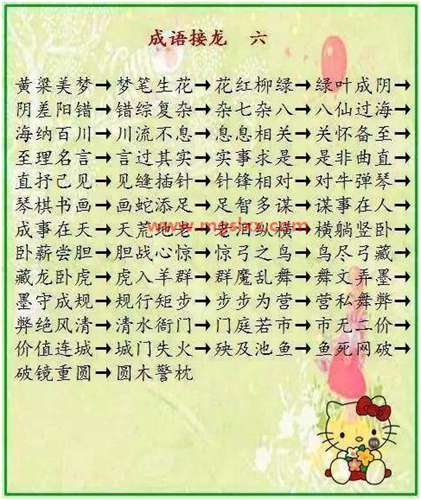 成语接龙 六
黄粱美梦→梦笔生花→花红柳绿→绿叶成阴→
阴差阳错→错综复杂→杂七杂八→八仙过海→
海纳百川→川流不息→息息相关→关怀备至→
至理名言→言过其实→实事求是→是非曲直→
直抒己见→见缝插针→针锋相对→对牛弹琴→
琴棋书画→画蛇添足→足智多谋→谋事在人→
成事在天→天荒地老→老泪纵横→横躺竖卧→
卧薪尝胆→胆战心惊→惊弓之鸟→鸟尽弓藏→
藏龙卧虎→虎入羊群→群魔乱舞→舞文弄墨→
墨守成规→规行短步→步步为营→营私舞弊→
弊绝风清→清水衙门→门庭若市→市无二价→
价值连城→城门失火→殃及池鱼→鱼死网破→
破镜重圆→圆木警枕